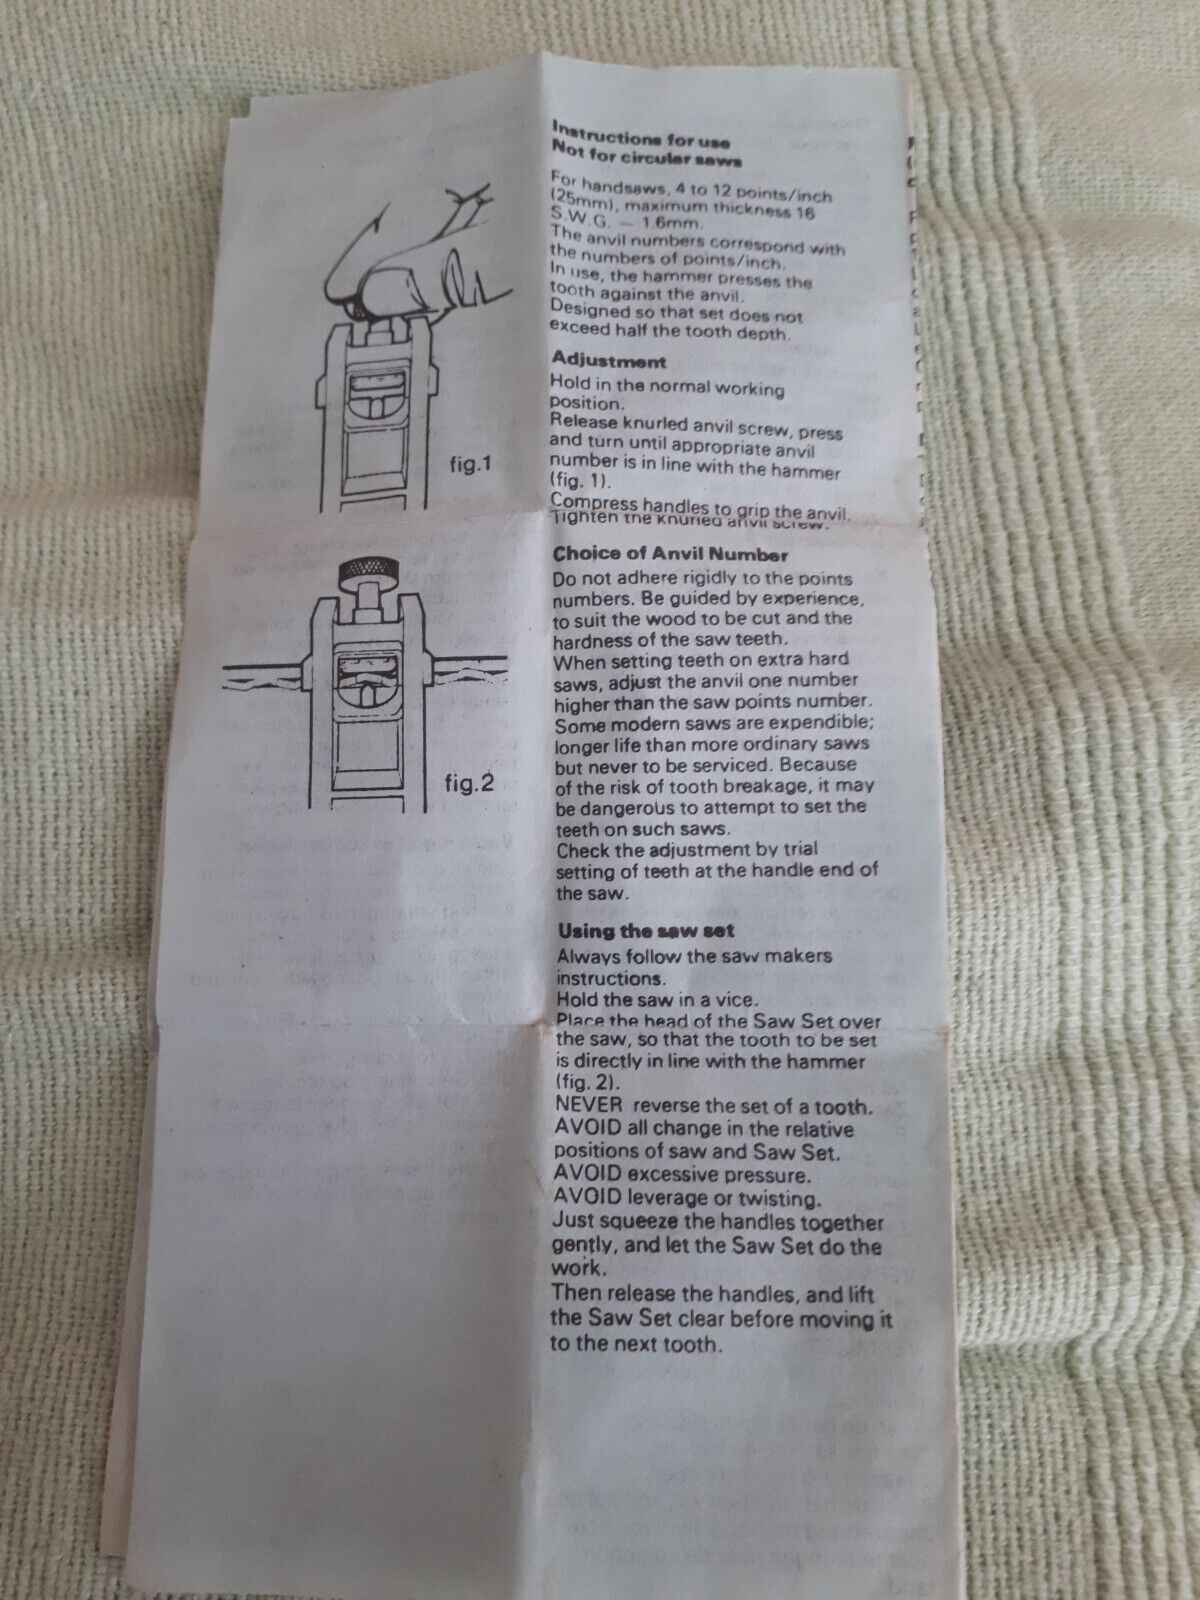 Instructions for use
Not for circular saws
For handsaws, 4 to 12 points/inch
(25mm), maximum thickness 16
S.W.G. — 1.6mm.
The anvil numbers correspond with
the numbers of points/inch.
In use, the hammer presses the
tooth against the anvil.
Designed so that set does not
exceed half the tooth depth.
Adjustment
Hold in the normal working
position.
Release knurled anvil screw, press
and turn until appropriate anvil
number is in line with the hammer
(fig. 1).
Compress handles to grip the anvil.
Tighten the knurled anvil screw.
fig.1
Choice of Anvil Number
Do not adhere rigidly to the points
numbers. Be guided by experience,
to suit the wood to be cut and the
hardness of the saw teeth.
When setting teeth on extra hard
saws, adjust the anvil one number
higher than the saw points number.
Some modern saws are expendible;
longer life than more ordinary saws
but never to be serviced. Because
of the risk of tooth breakage, it may
be dangerous to attempt to set the
teeth on such saws.
Check the adjustment by trial
setting of teeth at the handle end of
the saw.
fig.2
Using the saw set
Always follow the saw makers
instructions.
Hold the saw in a vice.
Place the head of the Saw Set over
the saw, so that the tooth to be set
is directly in line with the hammer
(fig. 2).
NEVER reverse the set of a tooth.
AVOID all change in the relative
positions of saw and Saw Set.
AVOID excessive pressure.
AVOID leverage or twisting.
Just squeeze the handles together
gently, and let the Saw Set do the
work.
Then release the handles, and lift
the Saw Set clear before moving it
to the next tooth.